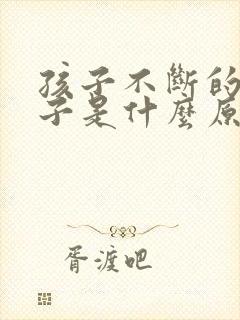 孩子不斷的
子是什麼原
胥渡吧